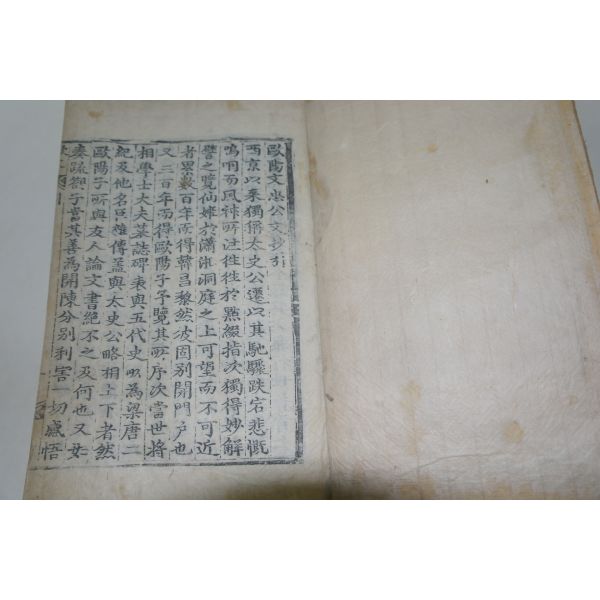 歐陽文忠公文抄引
西京以來獨稱太史公遷以其馳驟跌宕悲慨
嗚咽而風神所注徃徃於點綴指次獨得妙解
譬之覽仙姬於瀟湘洞庭之上可望而不可近
者累數百年而得韓昌黎然彼固別開門戶也
又三百年而得歐陽子予覽其所序次當世將
相學士大夫墓誌碑表與五代史所爲梁唐二
紀及他名臣雜傳盖與太史公略相上下者然
歐陽子所與友人論文書絶不之及何也又如
奏疏劄子當其善爲開陳分別利害一切感悟